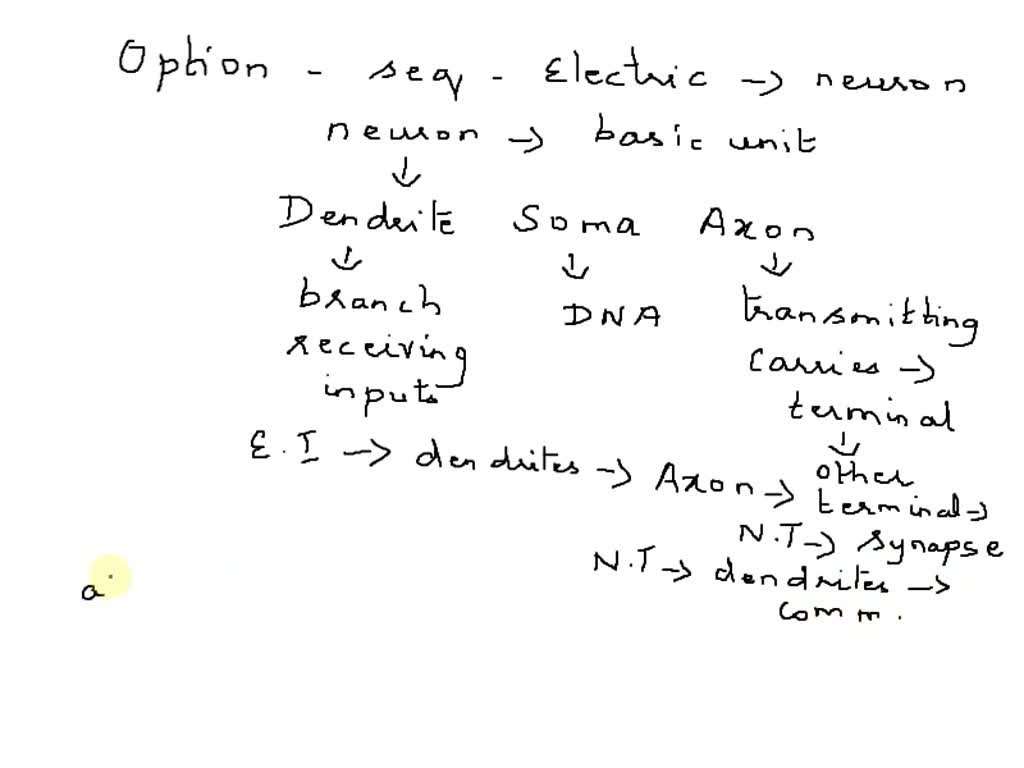 Option - seq - Electric → neuron
neuron → basic unit
↓
Dendrite Soma Axon
↓ ↓ ↓
branch DNA transmitting
receiving carries →
inputs terminal
↓
E.I → dendrites → Axon → other
terminal →
N.T → synapse
N.T → dendrites →
comm.
a